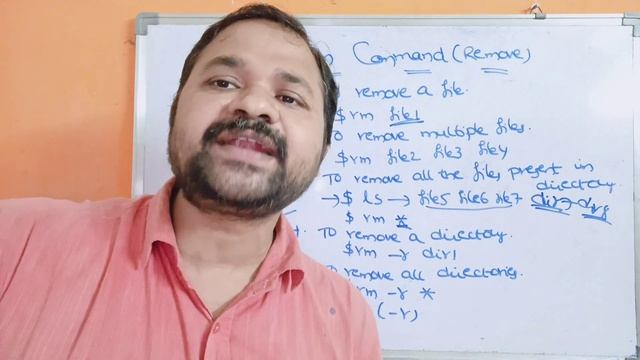 Command (Remove)
remove a file.
$ rm file1
TO remove multiple files.
$ rm file2 file3 file4
TO remove all the files present in
directory
→ $ ls → file5 file6 file7
$ rm *
TO remove a directory.
$ rm -r dir1
remove all directories.
rm -r *
(-r)